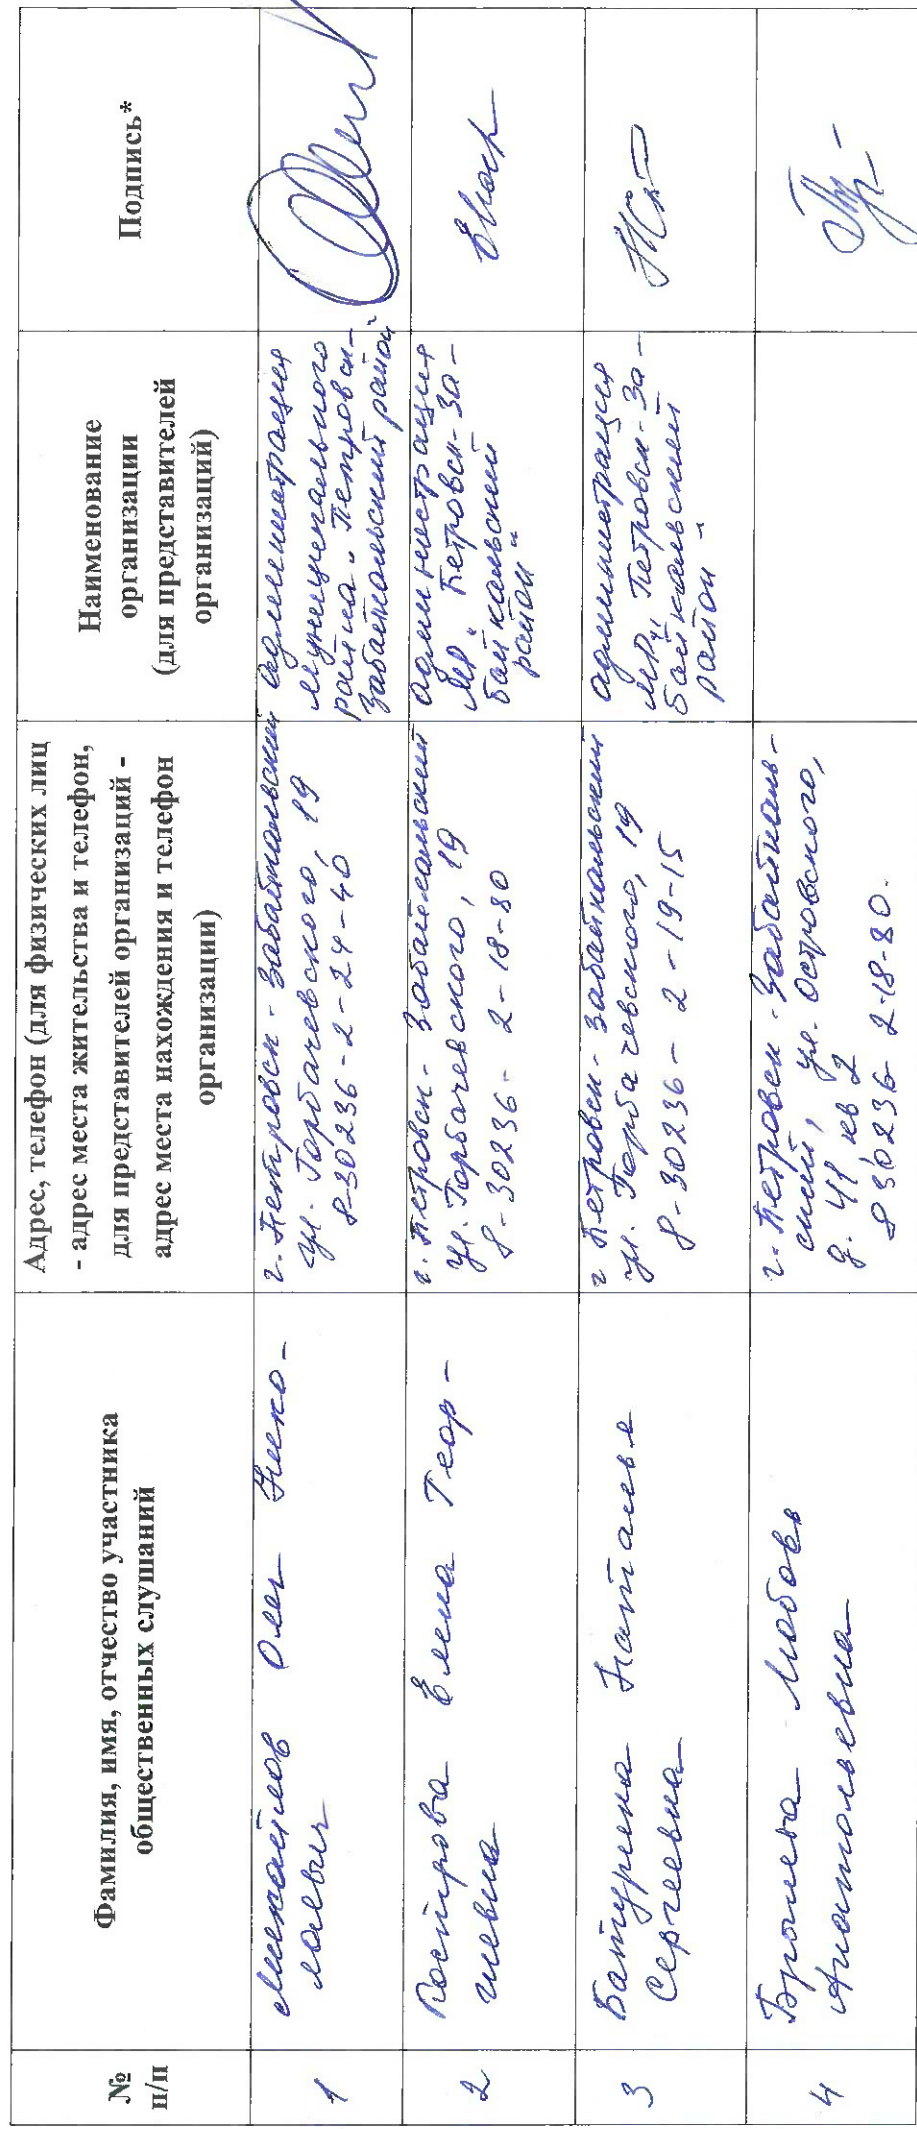 №
п/п
Фамилия, имя, отчество участника
общественных слушаний
Адрес, телефон (для физических лиц
- адрес места жительства и телефон,
для представителей организаций -
адрес места нахождения и телефон
организации)
Наименование
организации
(для представителей
организаций)
Подпись*
1
Михайлов Олег Нико-
лаевич
г. Петровск-Забайкальский
ул. Горбачевского, 19
830236-2-24-40
администрация
муниципального
района "Петровск-
Забайкальский район"
2
Построва Елена Геор-
гиевна
г. Петровск-Забайкальский
ул. Горбачевского, 19
8-30236- 2-18-80
администрация
МР "Петровск-За-
байкальский
район"
3
Батурина Наталья
Сергеевна
г Петровск-Забайкальский
ул. Горбачевского, 19
8-30236- 2-19-15
администрация
МР "Петровск-За-
байкальский
район"
4
Любовь
Анатольевна
г. Петровск-Забайкаль-
ский, ул. Островского,
д. 41 кв 2
8 30236 2-18-80.